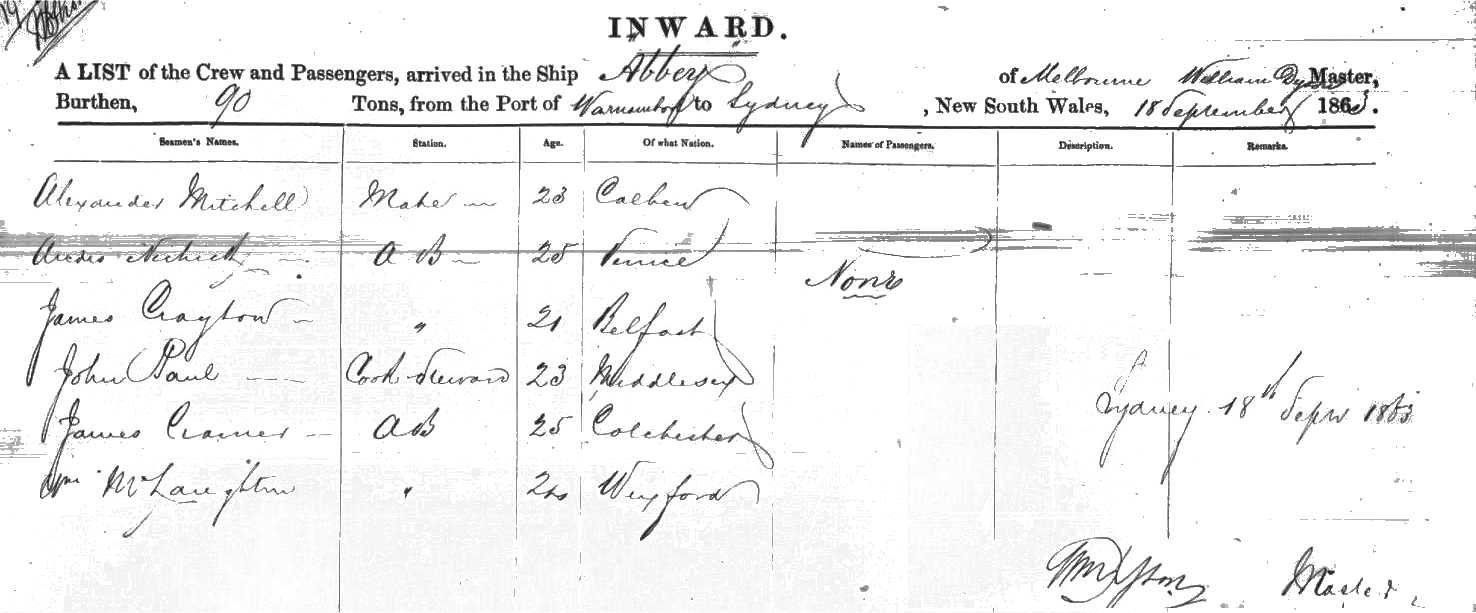 INWARD.
A LIST of the Crew and Passengers, arrived in the Ship Abbey of Melbourne William Dyson Master,
Burthen, 90 Tons, from the Port of Warnambool to Sydney, New South Wales, 18 September 1863.
Seamen's Names. Station. Age. Of what Nation. Names of Passengers. Description. Remarks.
Alexander Mitchell 23
A B 25 Venice
None
James Crayton „ 21 Belfast
John Paul Cook Steward 23 Middlesex
Sydney 18th Sepr 1863
James Cramer AB 25 Colchester
Wm McLaughton „ Wexford
Wm Dyson Master